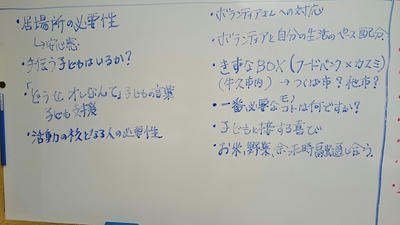 ・居場所の必要性
↳安心感
・手伝う子どもはいるか?
・「どうせ、オレなんて」子どもの言葉
子ども支援
・活動の核となる人の必要性
・ボランティアさんへの対応
・ボランティアと自分の生活のペース配分
・きずなBOX(フードバンク×カスミ)
(牛久市内)→つくば市?他市?
・一番必要なモノ・コトは何ですか?
・子どもと接する喜び
・お米、野菜、余った時融通し合う。